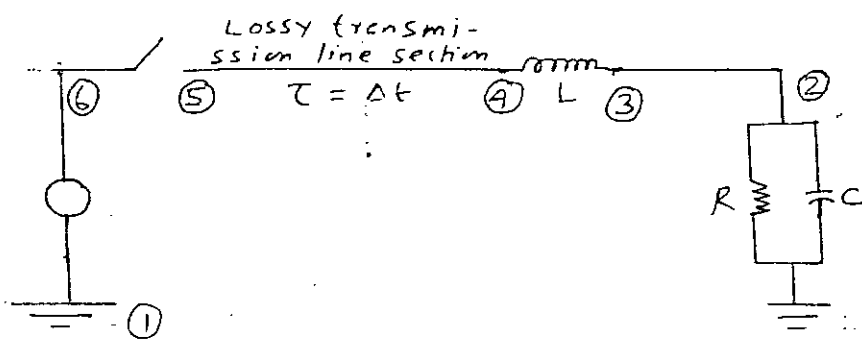 Lossy transmi-
ssion line section
⑥
⑤
τ = Δt
④
L
③
②
R
C
①